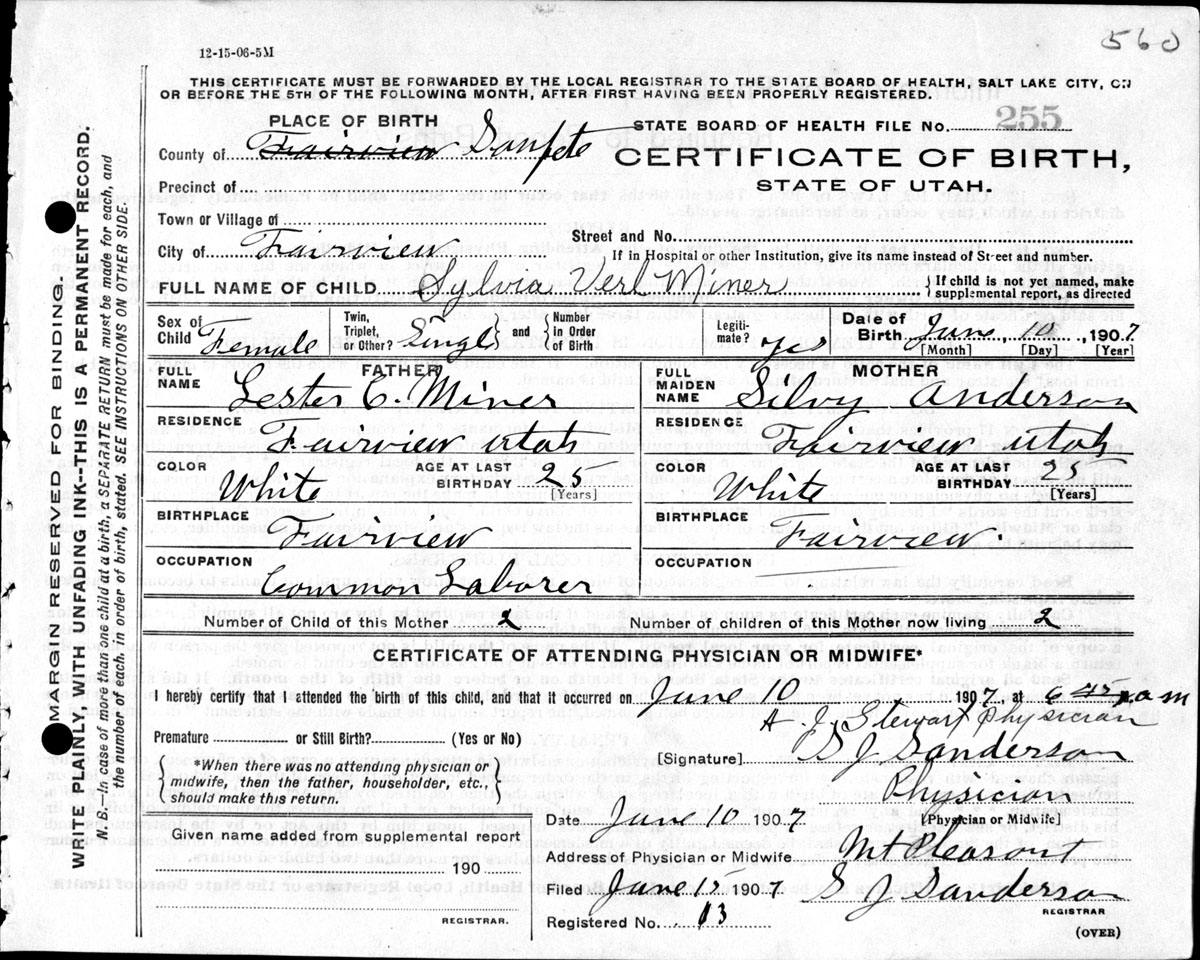 560
12-15-06-5M
THIS CERTIFICATE MUST BE FORWARDED BY THE LOCAL REGISTRAR TO THE STATE BOARD OF HEALTH, SALT LAKE CITY, ON
OR BEFORE THE 5TH OF THE FOLLOWING MONTH, AFTER FIRST HAVING BEEN PROPERLY REGISTERED.
PLACE OF BIRTH
STATE BOARD OF HEALTH FILE No. 255
County of Fairview Sanpete
CERTIFICATE OF BIRTH,
STATE OF UTAH.
Precinct of
Town or Village of
City of Fairview
Street and No.
If in Hospital or other Institution, give its name instead of Street and number.
FULL NAME OF CHILD Sylvia Verl Miner
{ If child is not yet named, make
supplemental report, as directed
Sex of Child Female
Twin, Triplet, or Other? Single and { Number in Order of Birth
Legiti-mate? yes
Date of Birth June 10 1907
[Month] [Day] [Year]
FATHER
FULL NAME Lester C. Miner
RESIDENCE Fairview utah
COLOR White AGE AT LAST BIRTHDAY 25
[Years]
BIRTHPLACE Fairview
OCCUPATION Common Laborer
MOTHER
FULL MAIDEN NAME Silvy Anderson
RESIDENCE Fairview utah
COLOR White AGE AT LAST BIRTHDAY
[Years]
BIRTHPLACE Fairview
OCCUPATION
Number of Child of this Mother 2 Number of children of this Mother now living 2
CERTIFICATE OF ATTENDING PHYSICIAN OR MIDWIFE*
I hereby certify that I attended the birth of this child, and that it occurred on June 10 1907, at 6 a m
A J Stewart Physician
Premature or Still Birth? (Yes or No)
[Signature] S J Sanderson
Physician
[Physician or Midwife]
{ *When there was no attending physician or
midwife, then the father, householder, etc.,
should make this return. }
Date June 10 1907
Address of Physician or Midwife Mt Pleasant
Given name added from supplemental report
190
REGISTRAR.
Filed June 1907 S J Sanderson
REGISTRAR
Registered No. 13
(OVER)
MARGIN RESERVED FOR BINDING.
WRITE PLAINLY, WITH UNFADING INK—THIS IS A PERMANENT RECORD.
N. B.—In case of more than one child at a birth, a SEPARATE RETURN must be made for each, and
the number of each, in order of birth, stated. SEE INSTRUCTIONS ON OTHER SIDE.